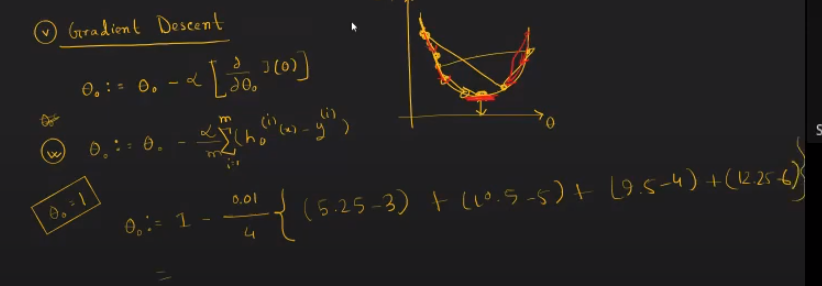 (v) Gradient Descent
θ₀ := θ₀ - α [∂/∂θ₀ J(θ)]
(vi) θ₀ := θ₀ - α/m Σᵢ₌₁ᵐ (hθ⁽ⁱ⁾(x) - y⁽ⁱ⁾)
θ
S
θ₀ = 1
θ₀ := 1 - 0.01/4 { (5.25-3) + (10.5-5) + (9.5-4) + (12.25-6) }
=